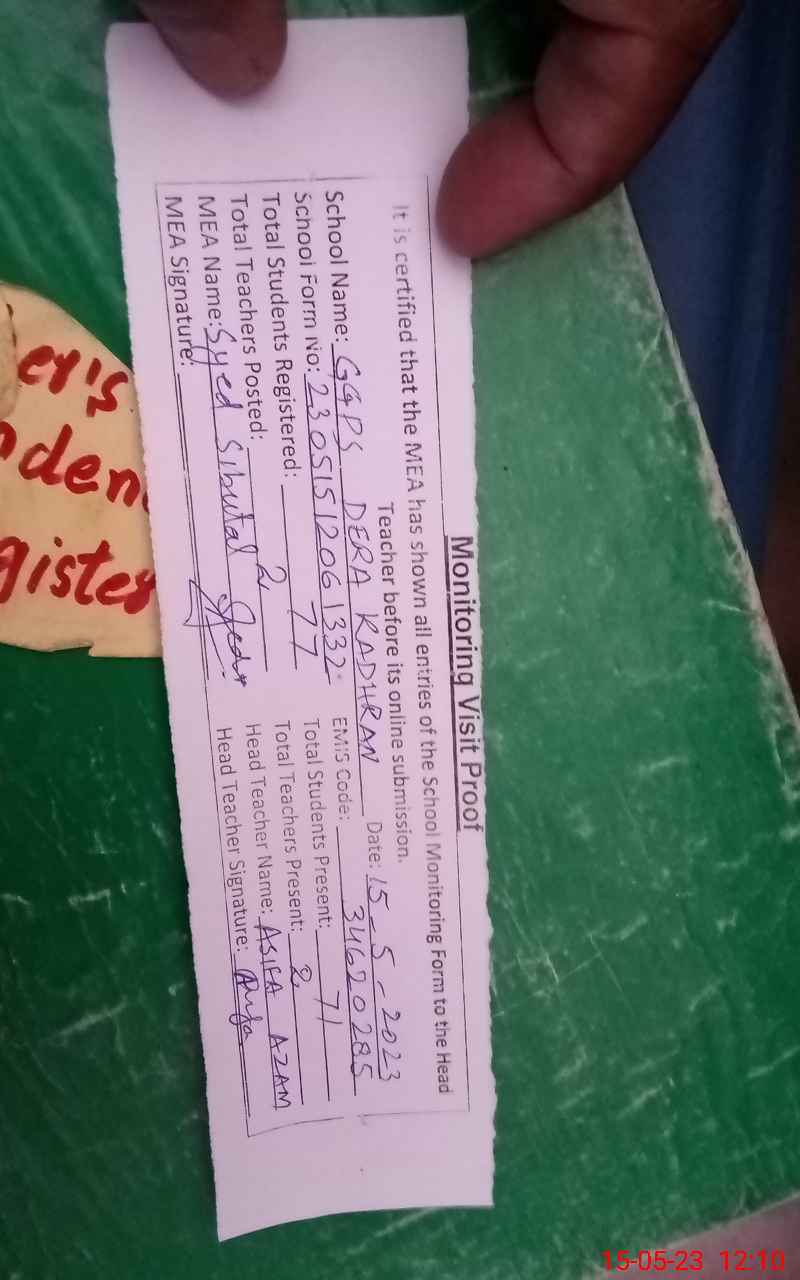 Monitoring Visit Proof
It is certified that the MEA has shown all entries of the School Monitoring Form to the Head
Teacher before its online submission.
School Name: GGPS DERA KADHRAN Date: 15-5-2023
School Form No: 23051512061332 EMIS Code: 34620285
Total Students Registered: 77 Total Students Present: 71
Total Teachers Posted: 2 Total Teachers Present: 2
MEA Name: Syed Head Teacher Name: ASIFA AZAM
MEA Signature: Head Teacher Signature:
er's
den
gister
15-05-23 12:10